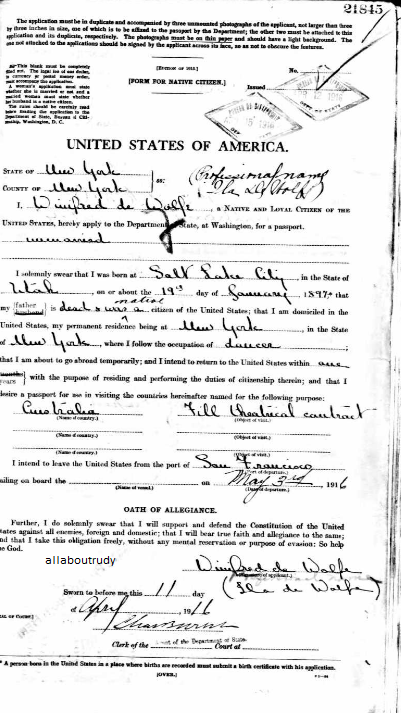 21845
The application must be in duplicate and accompanied by three unmounted photographs of the applicant, not larger than three
by three inches in size, one of which is to be affixed to the passport by the Department; the other two must be attached to this
application and its duplicate, respectively. The photographs must be on thin paper and should have a light background. The
one not attached to the applications should be signed by the applicant across its face, so as not to obscure the features.
[EDITION OF 1915.]
This blank must be completely
filled out. The legal fee of one dollar,
in currency or postal money order,
must accompany the application.
A woman's application must state
whether she is married or not and a
married woman must state whether
her husband is a native citizen.
The rules should be carefully read
before mailing the application to the
Department of State, Bureau of Citi-
zenship, Washington, D. C.
[FORM FOR NATIVE CITIZEN.]
No.
Issued
UNITED STATES OF AMERICA.
STATE OF New York
COUNTY OF New York
ss:
(Professional name
Ila De Wolfe)
I, Winifred de Wolfe, a NATIVE AND LOYAL CITIZEN OF THE
UNITED STATES, hereby apply to the Department of State, at Washington, for a passport.
unmarried
I solemnly swear that I was born at Salt Lake City, in the State of
Utah, on or about the 19th day of January, 1897, that
my father husband is dead & was a native citizen of the United States; that I am domiciled in the
United States, my permanent residence being at New York, in the State
of New York, where I follow the occupation of dancer
that I am about to go abroad temporarily; and I intend to return to the United States within one
months years with the purpose of residing and performing the duties of citizenship therein; and that I
desire a passport for use in visiting the countries hereinafter named for the following purpose:
Australia Fill theatrical contract
(Name of country.) (Object of visit.)
(Name of country.) (Object of visit.)
(Name of country.) (Object of visit.)
I intend to leave the United States from the port of San Francisco
(Port of departure.)
sailing on board the on May 3rd, 1916
(Name of vessel.) (Date of departure.)
OATH OF ALLEGIANCE.
Further, I do solemnly swear that I will support and defend the Constitution of the United
States against all enemies, foreign and domestic; that I will bear true faith and allegiance to the same;
and that I take this obligation freely, without any mental reservation or purpose of evasion: So help
me God.
allaboutrudy
Winifred de Wolfe
(Signature of applicant.)
(Ila de Wolfe)
Sworn to before me this 11 day
of April, 1916
Clerk of the Court at
Agent of the Department of State
* A person born in the United States in a place where births are recorded must submit a birth certificate with his application.
[OVER.]